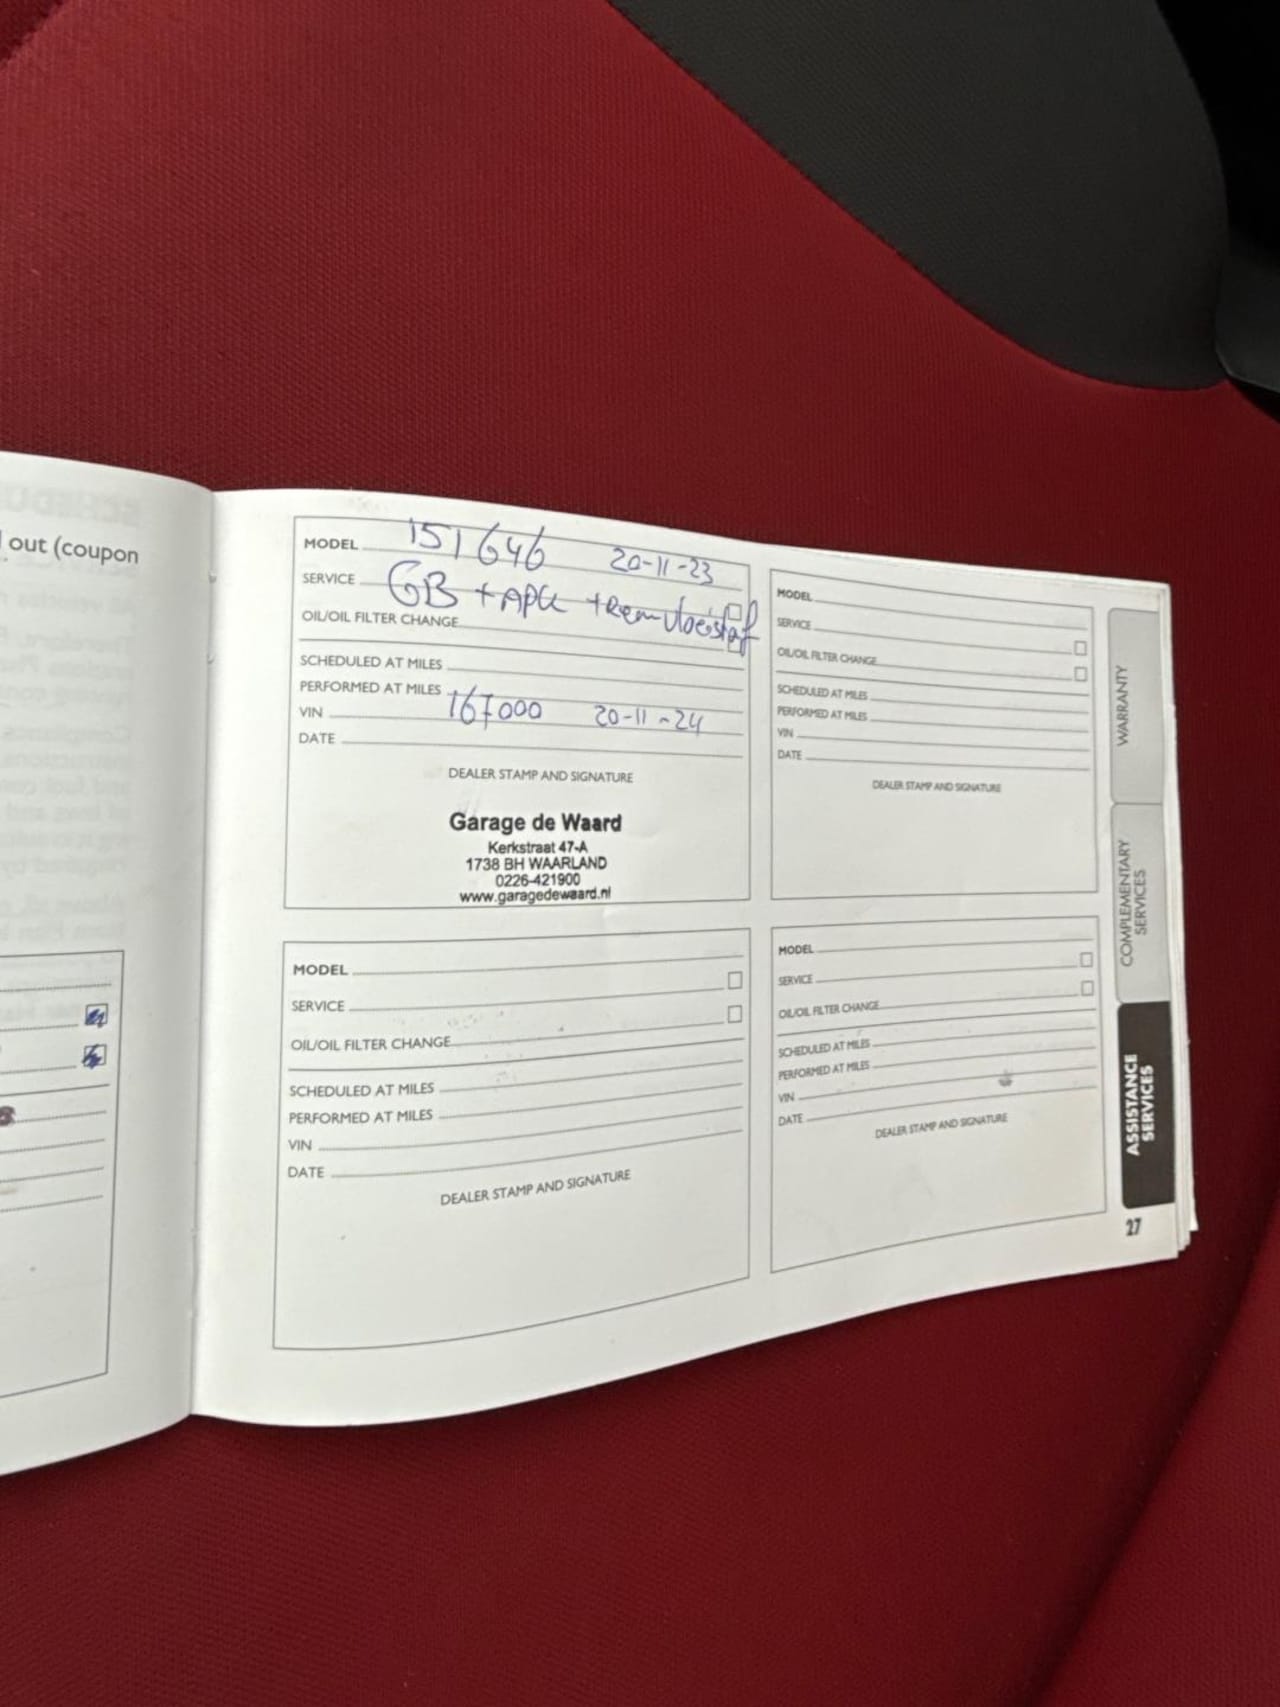 out (coupon
MODEL 151646 20-11-23
SERVICE GB + APK + Remvloeistof
OIL/OIL FILTER CHANGE
SCHEDULED AT MILES
PERFORMED AT MILES
VIN 167000 20-11-24
DATE
DEALER STAMP AND SIGNATURE
Garage de Waard
Kerkstraat 47-A
1738 BH WAARLAND
0226-421900
www.garagedewaard.nl
MODEL
SERVICE
OIL/OIL FILTER CHANGE
SCHEDULED AT MILES
PERFORMED AT MILES
VIN
DATE
DEALER STAMP AND SIGNATURE
MODEL
SERVICE
OIL/OIL FILTER CHANGE
SCHEDULED AT MILES
PERFORMED AT MILES
VIN
DATE
DEALER STAMP AND SIGNATURE
MODEL
SERVICE
OIL/OIL FILTER CHANGE
SCHEDULED AT MILES
PERFORMED AT MILES
VIN
DATE
DEALER STAMP AND SIGNATURE
WARRANTY
COMPLEMENTARY
SERVICES
ASSISTANCE
SERVICES
27